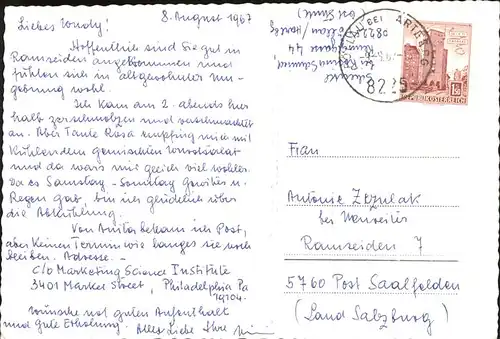 8. August 1967
Liebes
Hoffentlich sind Sie gut in
Ramseiden angekommen und
fühlen sich in altgewohnter Um-
gebung wohl.
Ich kam am 2. abends hier
halb zerschmolzen und verschmachtet
an. Aber Tante Rosa empfing mich mit
kühlendem gemischten Wurstsalat
und da war's mir gleich viel wohler.
Da es Samstag - Sonntag Gewitter u.
Regen gab, bin ich glücklich über
die Abkühlung.
Von Anita bekam ich Post,
aber keinen Termin wie lange sie noch
bleiben. Adresse. -
c/o Marketing Science Institute
3401 Market Street, Philadelphia Pa
19104.
Wünsche noch guten Aufenthalt
und gute Erholung. Alles Liebe Ihre
BEI ARTERG
8225
REPUBLIK ÖSTERREICH
Frau
Antonie Zezulak
bei Neureiter
Ramseiden 7
5760 Post Saalfelden
(Land Salzburg)